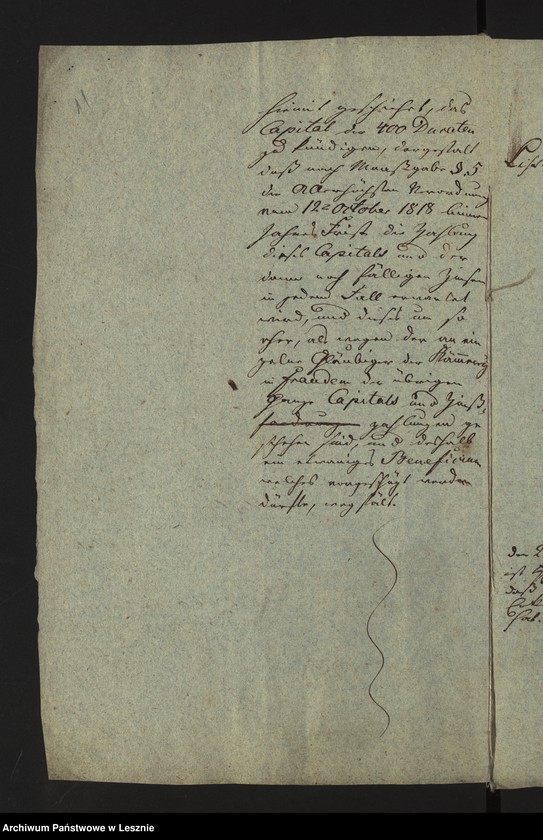 11
hiemit geschiehet, das
Capital der 400 Ducaten
zu kündigen, dergestalt
daß nach Maaßgabe §. 5
der Allerhöchsten Verordnung
vom 12t October 1818 binnen
Jahres Frist die Zahlung
dieses Capitals und der
dann noch fälligen Zinsen
in jedem Fall erwartet
wird, und dieses um so
eher, als wegen der an ein
zelne Gläubiger der Kämmerey
in fraudem der übrigen
Capitals und Zinß,
zahlungen ge
schehen sind, und deshalb
ein etwaniges Beneficium
welches vorgeschützt werden
dürfte, wegfält.
den 2
ist
daß
hat.
Archiwum Państwowe w Lesznie